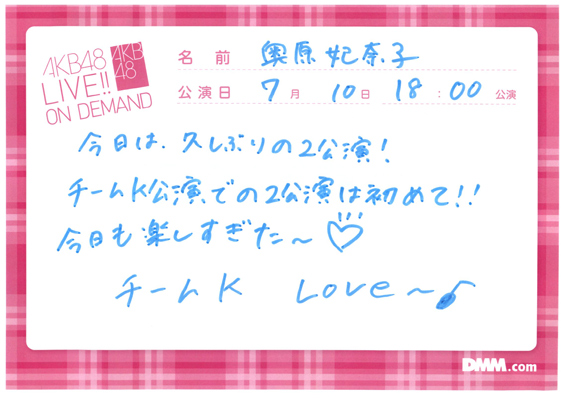 AKB48
LIVE!!
ON DEMAND
AKB
48
名前 奥原妃奈子
公演日 7月 10日 18:00 公演
今日は、久しぶりの2公演!
チームK公演での2公演は初めて!!
今日も楽しすぎた〜♡
チームK Love〜♪
DMM.com